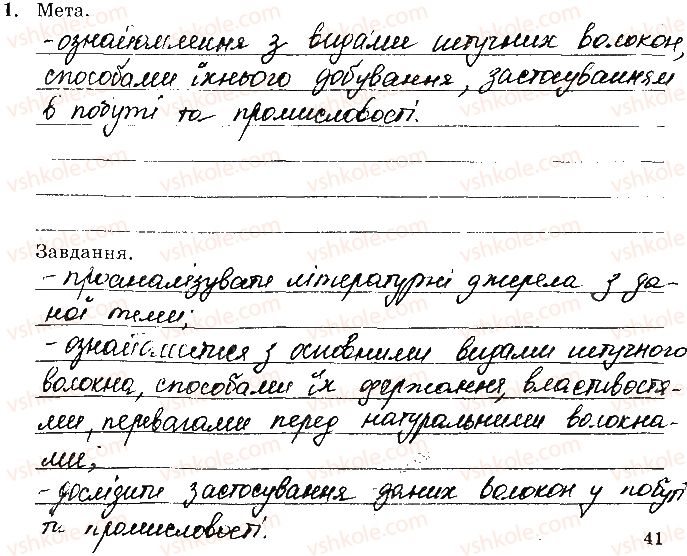 1. Мета.
- ознайомлення з видами штучних волокон,
способами їхнього добування, застосуванням
в побуті та промисловості.
Завдання.
- проаналізувати літературні джерела з да-
ної теми;
- ознайомитися з основними видами штучного
волокна, способами їх держання, властивостя-
ми, перевагами перед натуральними волокна-
ми;
- дослідити застосування даних волокон у побуті
та промисловості.
41